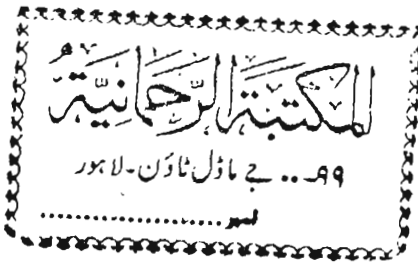 المكتبة الرحمانية
۹۹۔۔۔ جے ماڈل ٹاؤن۔ لاہور
نمبر......................